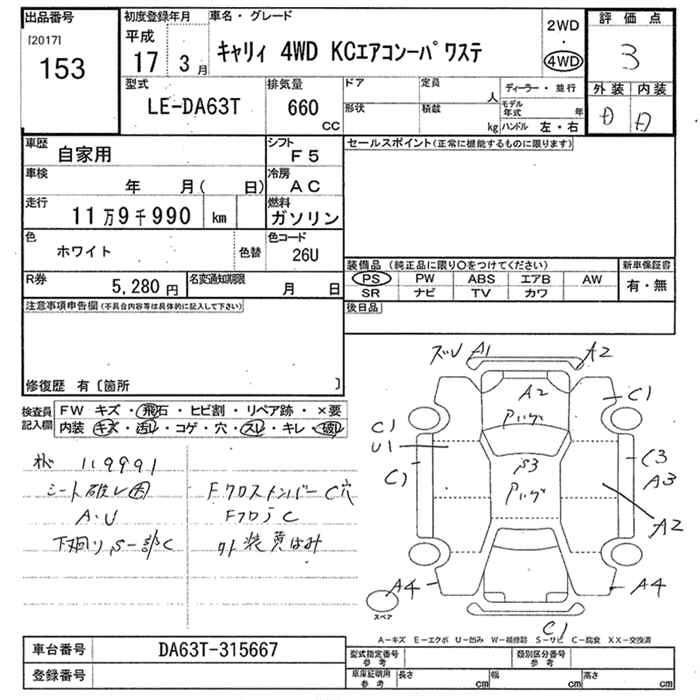 出品番号
[2017]
153
初度登録年月
平成
17 3 月
車名・グレード
キャリィ 4WD KCエアコンーパワステ
2WD
・
4WD
評価点
3
外装 内装
D D
型式
LE-DA63T
排気量
660
CC
ドア
定員
人
形状
積載
kg
ディーラー・並行
モデル年式 年
ハンドル 左・右
車歴
自家用
シフト
F5
車検
年 月( 日)
冷房
AC
走行
11万9千990 km
燃料
ガソリン
色
ホワイト
色替
色コード
26U
R券
5,280 円
名変通知期限
月 日
セールスポイント(正常に機能するものに限ります)
装備品 (純正品に限り〇をつけてください)
PS PW ABS エアB AW
SR ナビ TV カワ
新車保証書
有・無
後日品
注意事項申告欄(不具合内容等は具体的に記入して下さい)
修復歴 有〔箇所 〕
検査員記入欄
FW キズ・飛石・ヒビ割・リペア跡・×要
内装 キズ・汚レ・コゲ・穴・スレ・キレ・破レ
119991
シート破レ
A・U
下廻りS一部C
FクロスメンバーC穴
C
外装黄ばみ
A1
A2
A2
C1
C1
U1
C1
C3
A3
A2
A4
A4
C1
スペア
A－キズ E－エクボ U－凹み W－補修跡 S－サビ C－腐食 XX－交換済
車台番号
DA63T-315667
登録番号
型式指定番号
参考
類別区分番号
参考
車庫証明用
参考
長さ cm
幅 cm
高さ cm